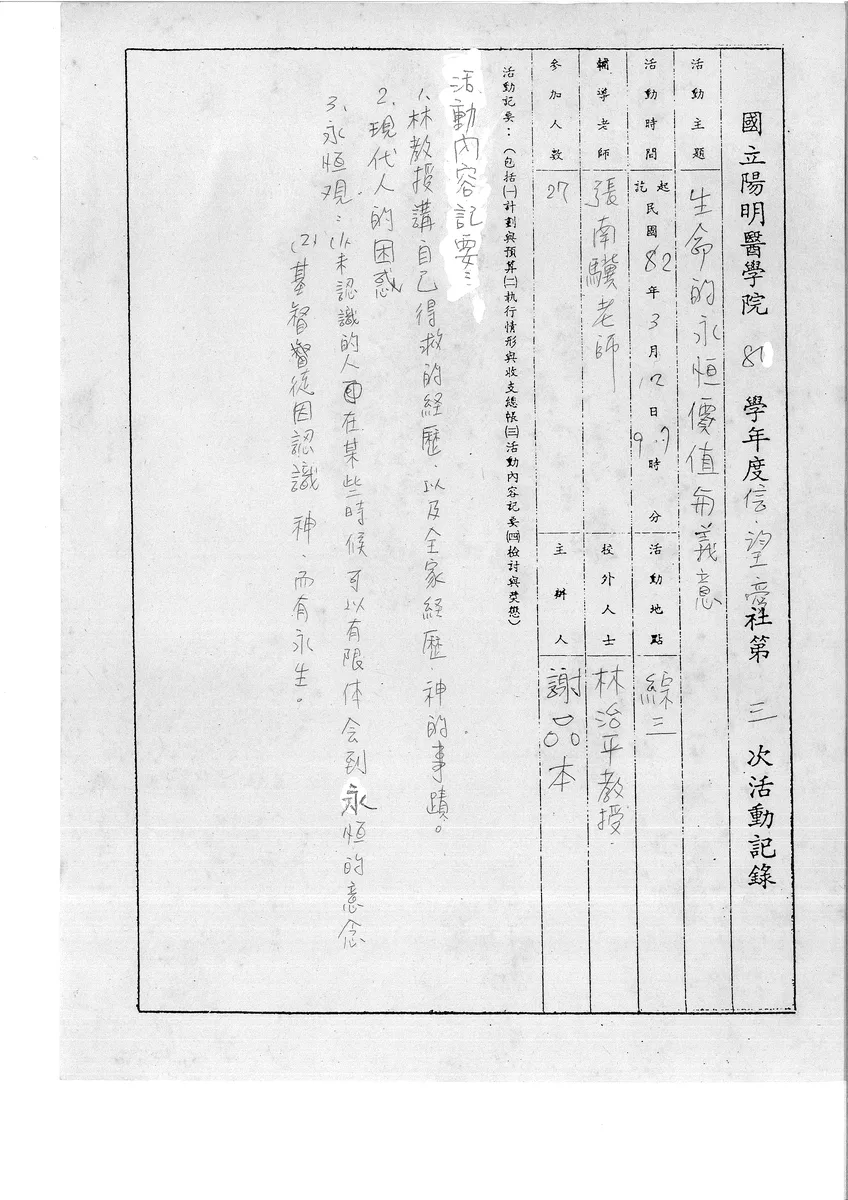 國立陽明醫學院 81 學年度信.望愛社第 三 次活動記錄
活動主題 生命的永恒價值與義意
活動時間 起訖 民國 82 年 3 月 12 日 時 分 活動地點 綜三
輔導老師 張南驥老師 校外人士 林治平教授
參加人數 27 主辦人 謝品本
活動記要：（包括㈠計劃與預算㈡執行情形與收支總帳㈢活動內容記要㈣檢討與獎懲）
活動內容記要：
1、林教授講自己得救的経歷.以及全家経歷 神的事蹟。
2、現代人的困惑
3、永恒观：(1)未認識的人 在某些時候可以有限体会到永恒的意念
(2)基督徒因認識 神.而有永生。